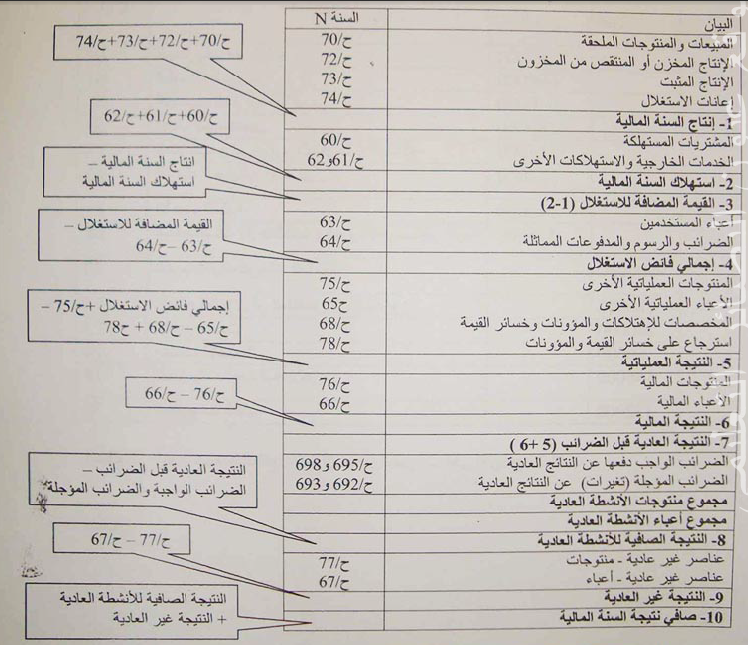 البيان السنة N
المبيعات والمنتوجات الملحقة ح/70
الإنتاج المخزن أو المنتقص من المخزون ح/72
الإنتاج المثبت ح/73
إعانات الاستغلال ح/74
1- إنتاج السنة المالية
المشتريات المستهلكة ح/60
الخدمات الخارجية والاستهلاكات الأخرى ح/61و62
2- استهلاك السنة المالية
3- القيمة المضافة للاستغلال (1-2)
أعباء المستخدمين ح/63
الضرائب والرسوم والمدفوعات المماثلة ح/64
4- إجمالي فائض الاستغلال
المنتوجات العملياتية الأخرى ح/75
الأعباء العملياتية الأخرى ح65
المخصصات للإهتلاكات والمؤونات وخسائر القيمة ح/68
استرجاع على خسائر القيمة والمؤونات ح/78
5- النتيجة العملياتية
المنتوجات المالية ح/76
الأعباء المالية ح/66
6- النتيجة المالية
7- النتيجة العادية قبل الضرائب (5 +6 )
الضرائب الواجب دفعها عن النتائج العادية ح/695 و 698
الضرائب المؤجلة (تغيرات) عن النتائج العادية ح/692 و 693
مجموع منتوجات الأنشطة العادية
مجموع أعباء الأنشطة العادية
8- النتيجة الصافية للأنشطة العادية
عناصر غير عادية - منتوجات ح/77
عناصر غير عادية - أعباء ح/67
9- النتيجة غير العادية
10- صافي نتيجة السنة المالية
ح/70+ح/72+ح/73+ح/74
ح/60+ح/61+ح/62
انتاج السنة المالية –
استهلاك السنة المالية
القيمة المضافة للاستغلال –
ح/63 – ح/64
إجمالي فائض الاستغلال +ح/75 –
ح/65 – ح/68 + ح78
ح/76 – ح/66
النتيجة العادية قبل الضرائب –
الضرائب الواجبة والضرائب المؤجلة
ح/77 – ح/67
النتيجة الصافية للأنشطة العادية
+ النتيجة غير العادية